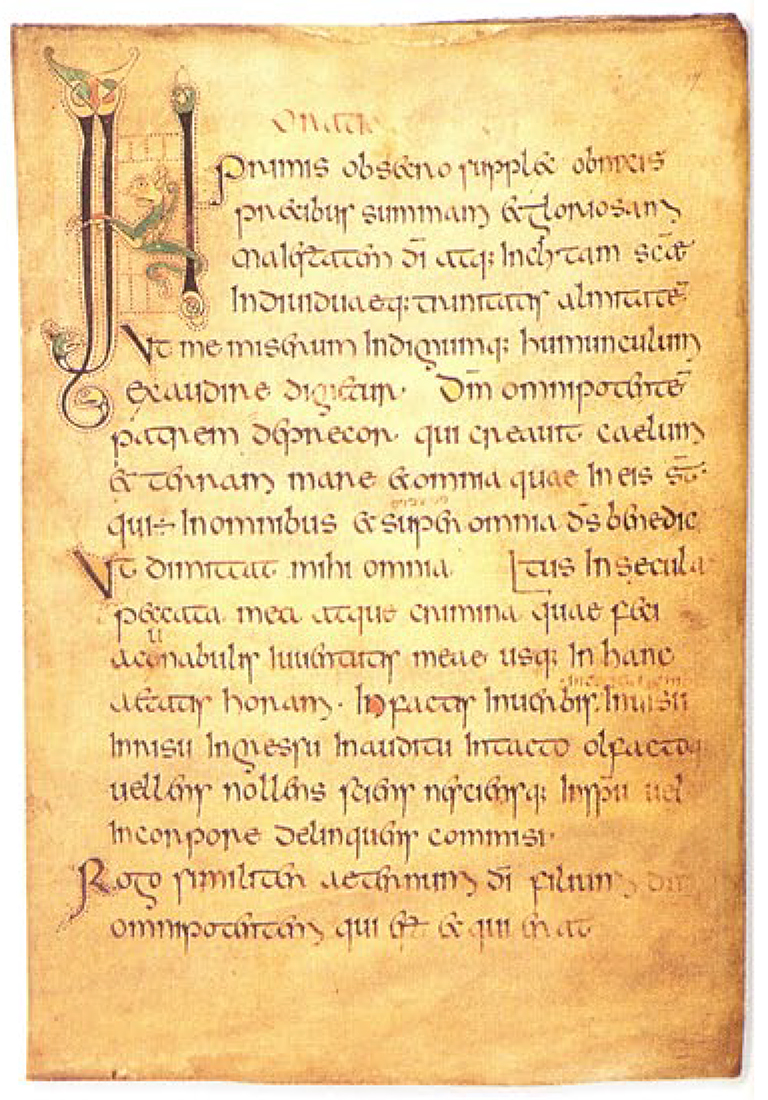 Oratio
IN primis obsecro supplex obnixis
precibus summam & gloriosam
maiestatem dī atq; Inclitam scāe
Indiuiduaeq; trinitatis almitatē
Vt me miserum Indignumq; humunculum
exaudire dignetur· Dm̄ omnipotentē
patrem deprecor· qui creauit caelum
& terram mare & omnia quae In eis st̄·
qui ÷ In omnibus & super omnia ds̄ benedic
Vt dimittat mihi omnia tus In secula
peccata mea atque crimina quae feci
a conabulis Iuuentutis meae usq; In hanc
aetatis horam· In factis In uerbis· In uisu
In risu In gressu In auditu In tacto olfactoq;
uellens nollens sciens nesciensq; In spu uel
In corpore delinquens commisi·
Rogo similiter aeternum dī filium
omnipotentem qui est & qui erat